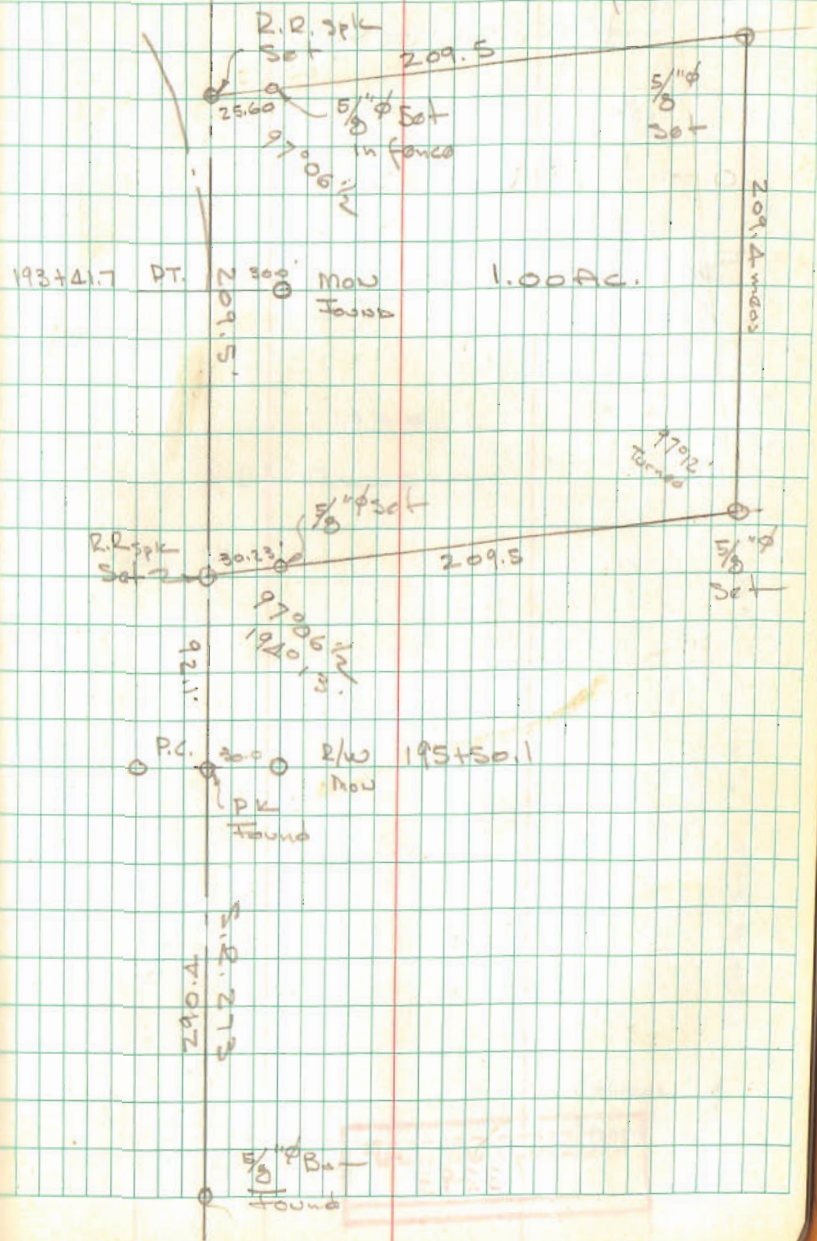 R.R. Spk
Set
209.5
25.60
5/8"φ Set
in fence
97°06 1/2
5/8"φ
Set
209.4 meas
193+41.7 P.T.
209.5'
30.0'
Mon
Found
1.00 Ac.
97°12'
Turned
5/8"φ Set
R.R. Spk
Set
30.23'
209.5
5/8"φ
Set
97°06 1/2
194°13'
P.C.
30.0
R/W
Mon
195+50.1
PK
Found
290.4
S.R. 273
5/8"φ Bar
Found